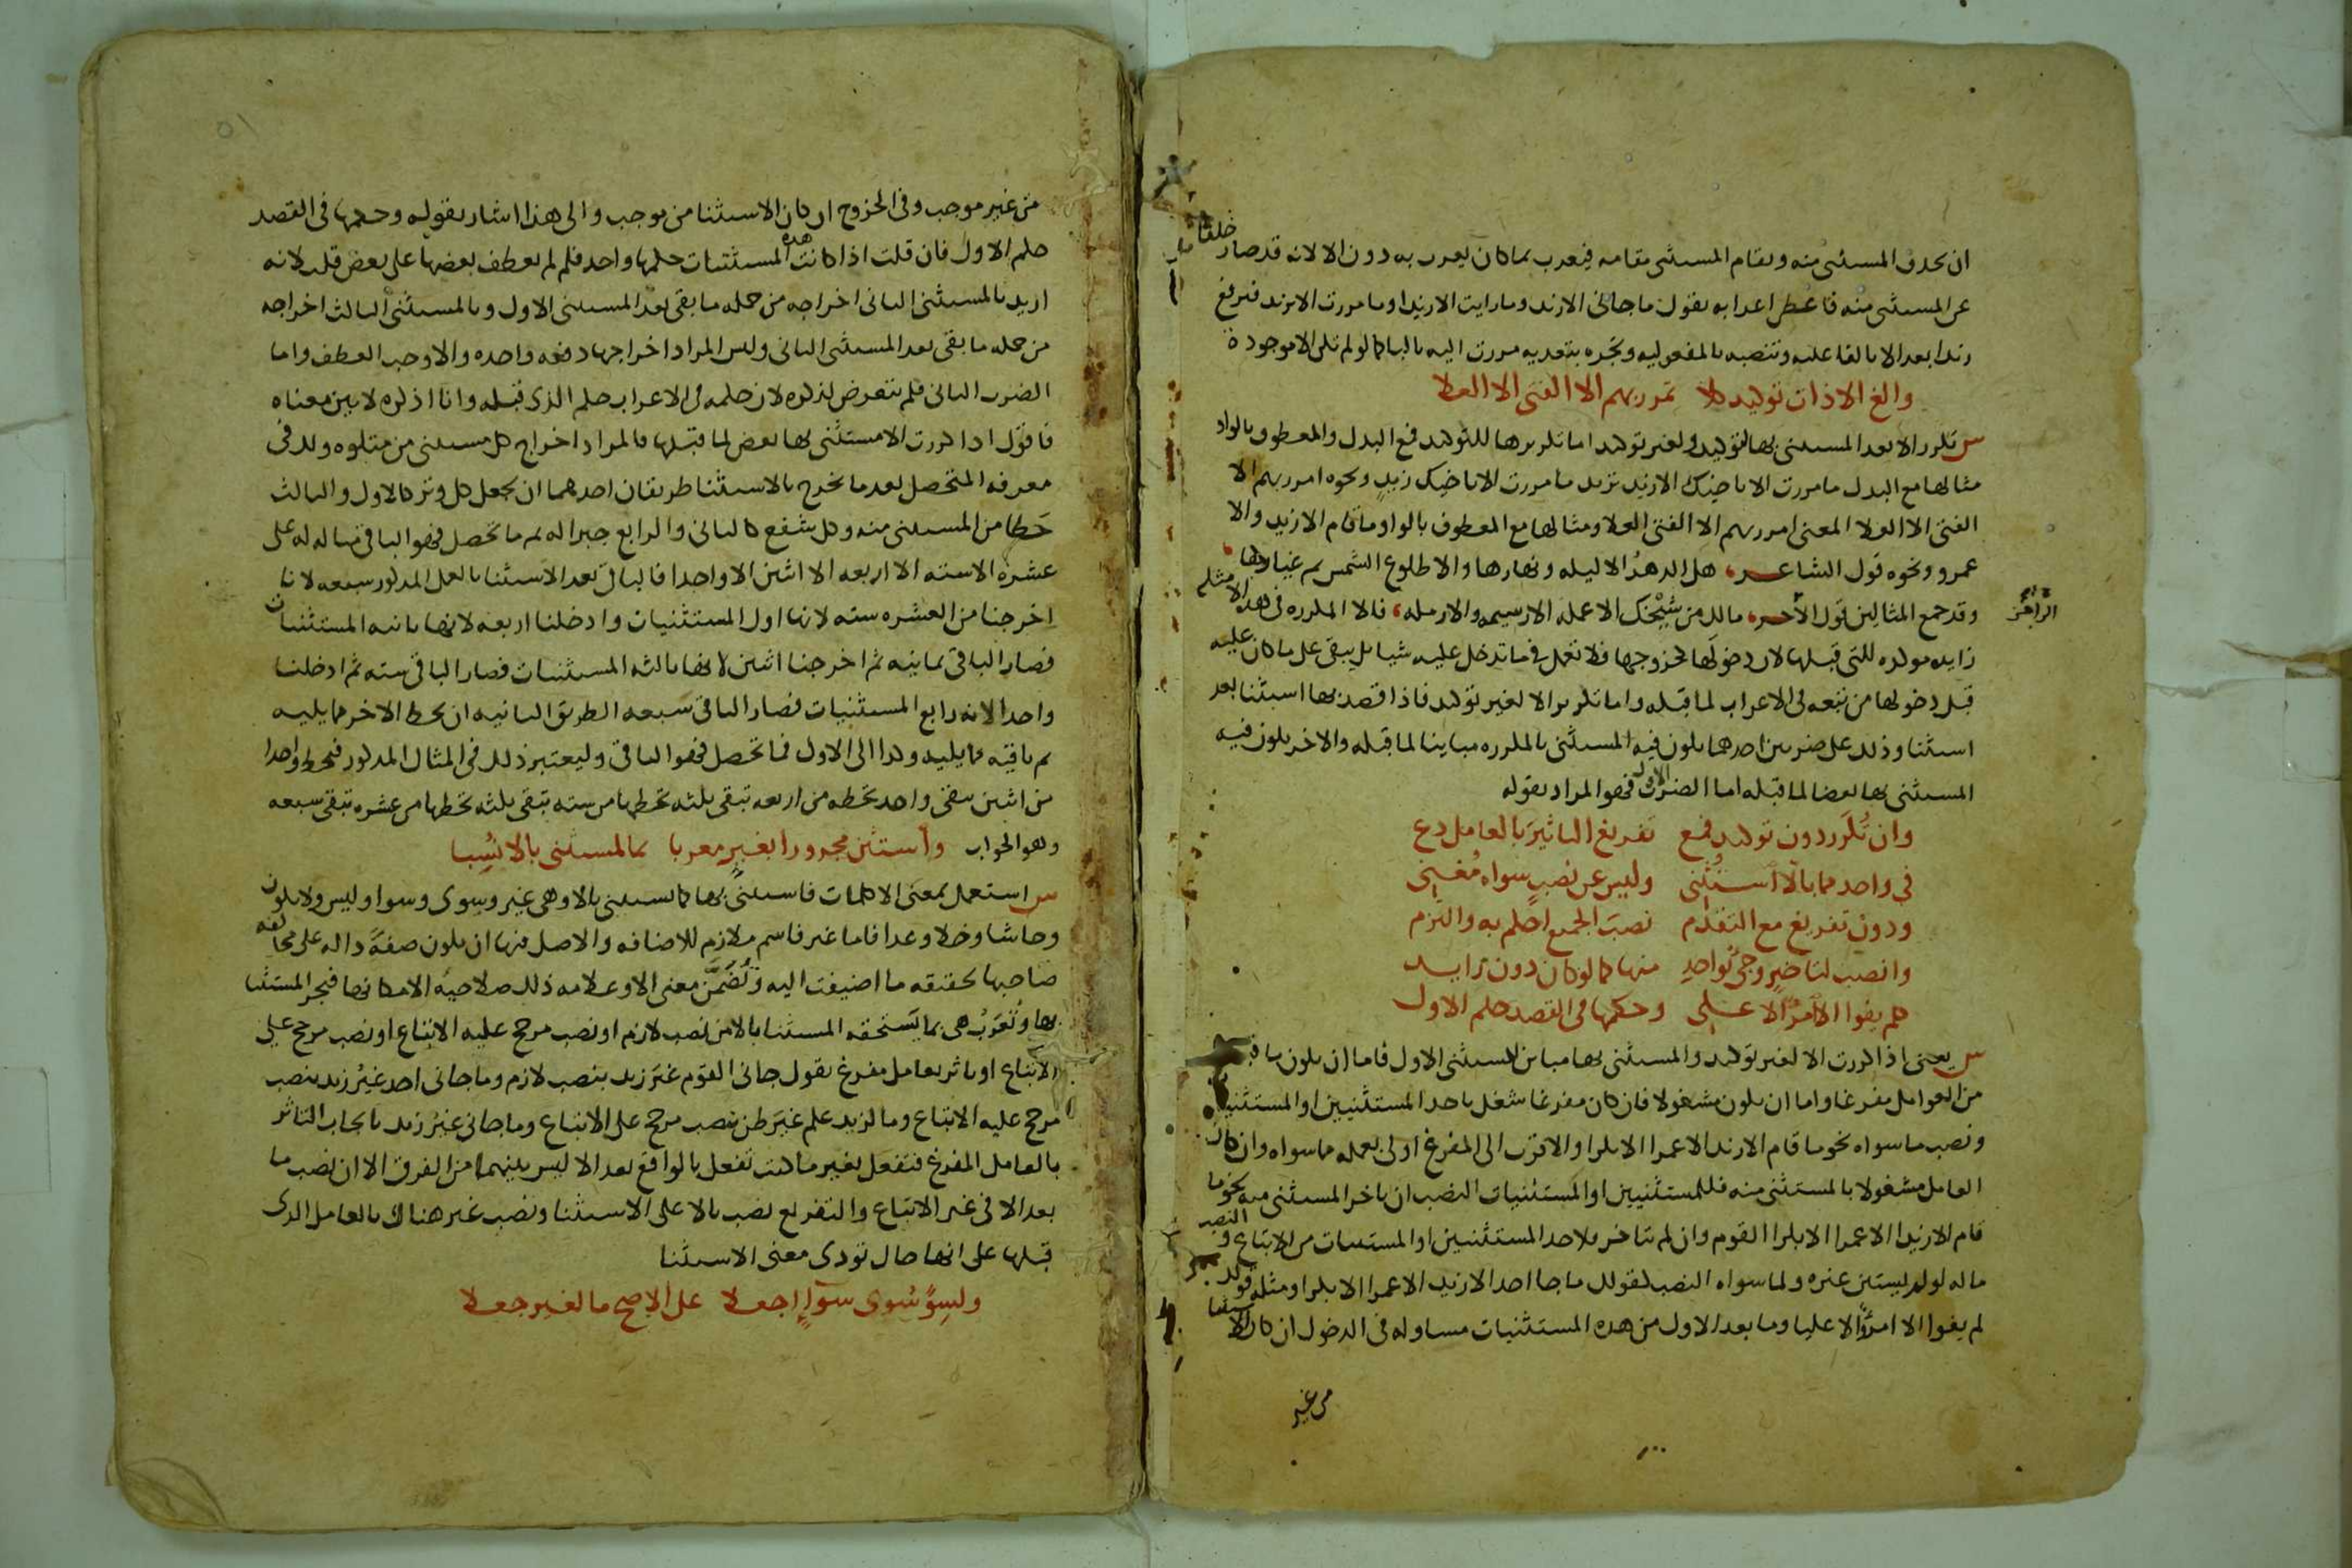 ان يحدف المستثنى منه ويقام المستثنى مقامه فيعرب بما كان يعرب به دون الا لانه قد صار خلفا
عن المستثنى منه فاعطى اعرابه تقول ما جانى الا زيد وما رايت الا زيدا وما مررت الا بزيد فترفع
زيدا بعد الا بالفاعليه وتنصبه بالمفعوليه وتجره بتعديه مررت اليه بالبا كما لو لم تكن الا موجودة
والغ الا ذات توكيد كلا تمرر بهم الا الفتى الا العلا
س تكرر الا بعد المستثنى بها لتوكيد ولغير توكيد اما تكريرها للتوكيد فمع البدل والمعطوف بالواو
مثالها مع البدل ما مررت الا باخيك الا زيد تريد ما مررت الا باخيك زيد ونحوه امرر بهم الا
الفتى الا العلا المعنى امرر بهم الا الفتى العلا ومثالها مع المعطوف بالواو ما قام الا زيد والا
عمرو ونحوه قول الشاعر، هل الدهر الا ليله ونهارها والا طلوع الشمس ثم غيارها،
الراجز
وقد جمع المثالين قول الاخر، مالك من شيخك الا عمله الا رسيمه والا رمله، فالا المكرره فى هذه الامثله
زايده موكده للتى قبلها لان دخولها كخروجها فلا تعمل فيما تدخل عليه شيا بل يبقى على ما كان عليه
قبل دخولها من تبعه فى الاعراب لما قبله واما تكرير الا لغير توكيد فاذا قصد بها استثنا بعد
استثنا وذلك على ضربين احدهما يكون فيه المستثنى بالمكرره مباينا لما قبله والاخر يكون فيه
المستثنى بها بعضا لما قبله اما الضرب الاول فهو المراد بقوله
وان تكرر دون توكيد فمع تفريغ التاثير بالعامل دع
فى واحد مما بالا استثنى وليس عن نصب سواه مغنى
ودون تفريغ مع التقدم نصب الجميع احكم به والتزم
وانصب لتاخير وجئ بواحد منها كما لو كان دون زايد
كلم يفوا الا امرؤ الا على وحكمها فى القصد حكم الاول
س يعنى اذا كررت الا لغير توكيد والمستثنى بها مباين للمستثنى الاول فاما ان يكون ما قبلها
من العوامل مفرغا واما ان يكون مشغولا فان كان مفرغا شغل باحد المستثنيين او المستثنيات
ونصب ما سواه نحو ما قام الا زيد الا عمرا الا بكرا والاقرب الى المفرغ اولى بعمله مما سواه وان كان
العامل مشغولا بالمستثنى منه فللمستثنيين او المستثنيات النصب ان تاخر المستثنى منه نحو ما
قام الا زيدا الا عمرا الا بكرا القوم وان لم يتاخر فلاحد المستثنيين او المستثنيات من الاتباع والنصب
ما له لو لم يستثن غيره ولما سواه النصب كقولك ما جا احد الا زيد الا عمرا الا بكرا ومثله قوله
لم يفوا الا امرؤ الا عليا وما بعد الاول من هذه المستثنيات مساو له فى الدخول ان كان الاستثنا
من غير
من غير موجب وفى الخروج ان كان الاستثنا من موجب والى هذا اشار بقوله وحكمها فى القصد
حكم الاول فان قلت اذا كانت هذه المستثنيات حكمها واحد فلم لم يعطف بعضها على بعض قلت لانه
اريد بالمستثنى الثانى اخراجه من جمله ما بقى بعد المستثنى الاول وبالمستثنى الثالث اخراجه
من جمله ما بقى بعد المستثنى الثانى وليس المراد اخراجها دفعه واحده والا وجب العطف واما
الضرب الثانى فلم يتعرض لذكره لان حكمه فى الاعراب حكم الذى قبله وانا اذكره لابين معناه
فاقول اذا كررت الا مستثنى بها بعض لما قبلها فالمراد اخراج كل مستثنى من متلوه ولك فى
معرفه المتحصل بعد ما يخرج بالاستثنا طريقان احدهما ان يجعل كل وتر كالاول والثالث
حطا من المستثنى منه وكل شفع كالثانى والرابع جبرا له ثم ما تحصل فهو الباقى مثاله له على
عشرة الا سته الا اربعه الا اثنين الا واحدا فالباقى بعد الاستثنا بالعمل المذكور سبعه لانا
اخرجنا من العشره سته لانها اول المستثنيات وادخلنا اربعه لانها ثانيه المستثنيات
فصار الباقى ثمانيه ثم اخرجنا اثنين لانها ثالثه المستثنيات فصار الباقى سته ثم ادخلنا
واحدا لانه رابع المستثنيات فصار الباقى سبعه الطريق الثانيه ان يحط الاخر مما يليه
ثم باقيه مما يليه وكذا الى الاول فما تحصل فهو الباقى وليعتبر ذلك فى المثال المذكور فتحط واحدا
من اثنين يبقى واحد تحطه من اربعه تبقى ثلثه تحطها من سته تبقى ثلثه تحطها من عشره تبقى سبعه
وهو الجواب واستثن مجرورا بغير معربا بما لمستثنى بالا نسبا
س استعمل بمعنى الا كلمات فاستثنى بها كما يستثنى بالا وهى غير وسوى وسوا وليس ولا يكون
وحاشا وخلا وعدا فاما غير فاسم ملازم للاضافه والاصل فيها ان يكون صفة داله على مخالفه
صاحبها لحقيقه ما اضيفت اليه وتضمن معنى الا وعلامه ذلك صلاحية الا مكانها فيجر المستثنا
بها وتعرب هى بما يستحقه المستثنا بالا من نصب لازم او نصب مرجح عليه الاتباع او نصب مرجح على
الاتباع او تاثر بعامل مفرغ تقول جانى القوم غير زيد بنصب لازم وما جانى احد غير زيد بنصب
مرجح عليه الاتباع وما لزيد علم غير ظن بنصب مرجح على الاتباع وما جانى غير زيد بايجاب التاثر
بالعامل المفرغ فتفعل بغير ما كنت تفعل بالواقع بعد الا ليس بينهما من الفرق الا ان نصب ما
بعد الا فى غير الاتباع والتفريع نصب بالا على الاستثنا ونصب غير هناك بالعامل الذى
قبلها على انها حال تودى معنى الاستثنا
ولسوى سوى سواء اجعلا على الاصح ما لغير جعلا